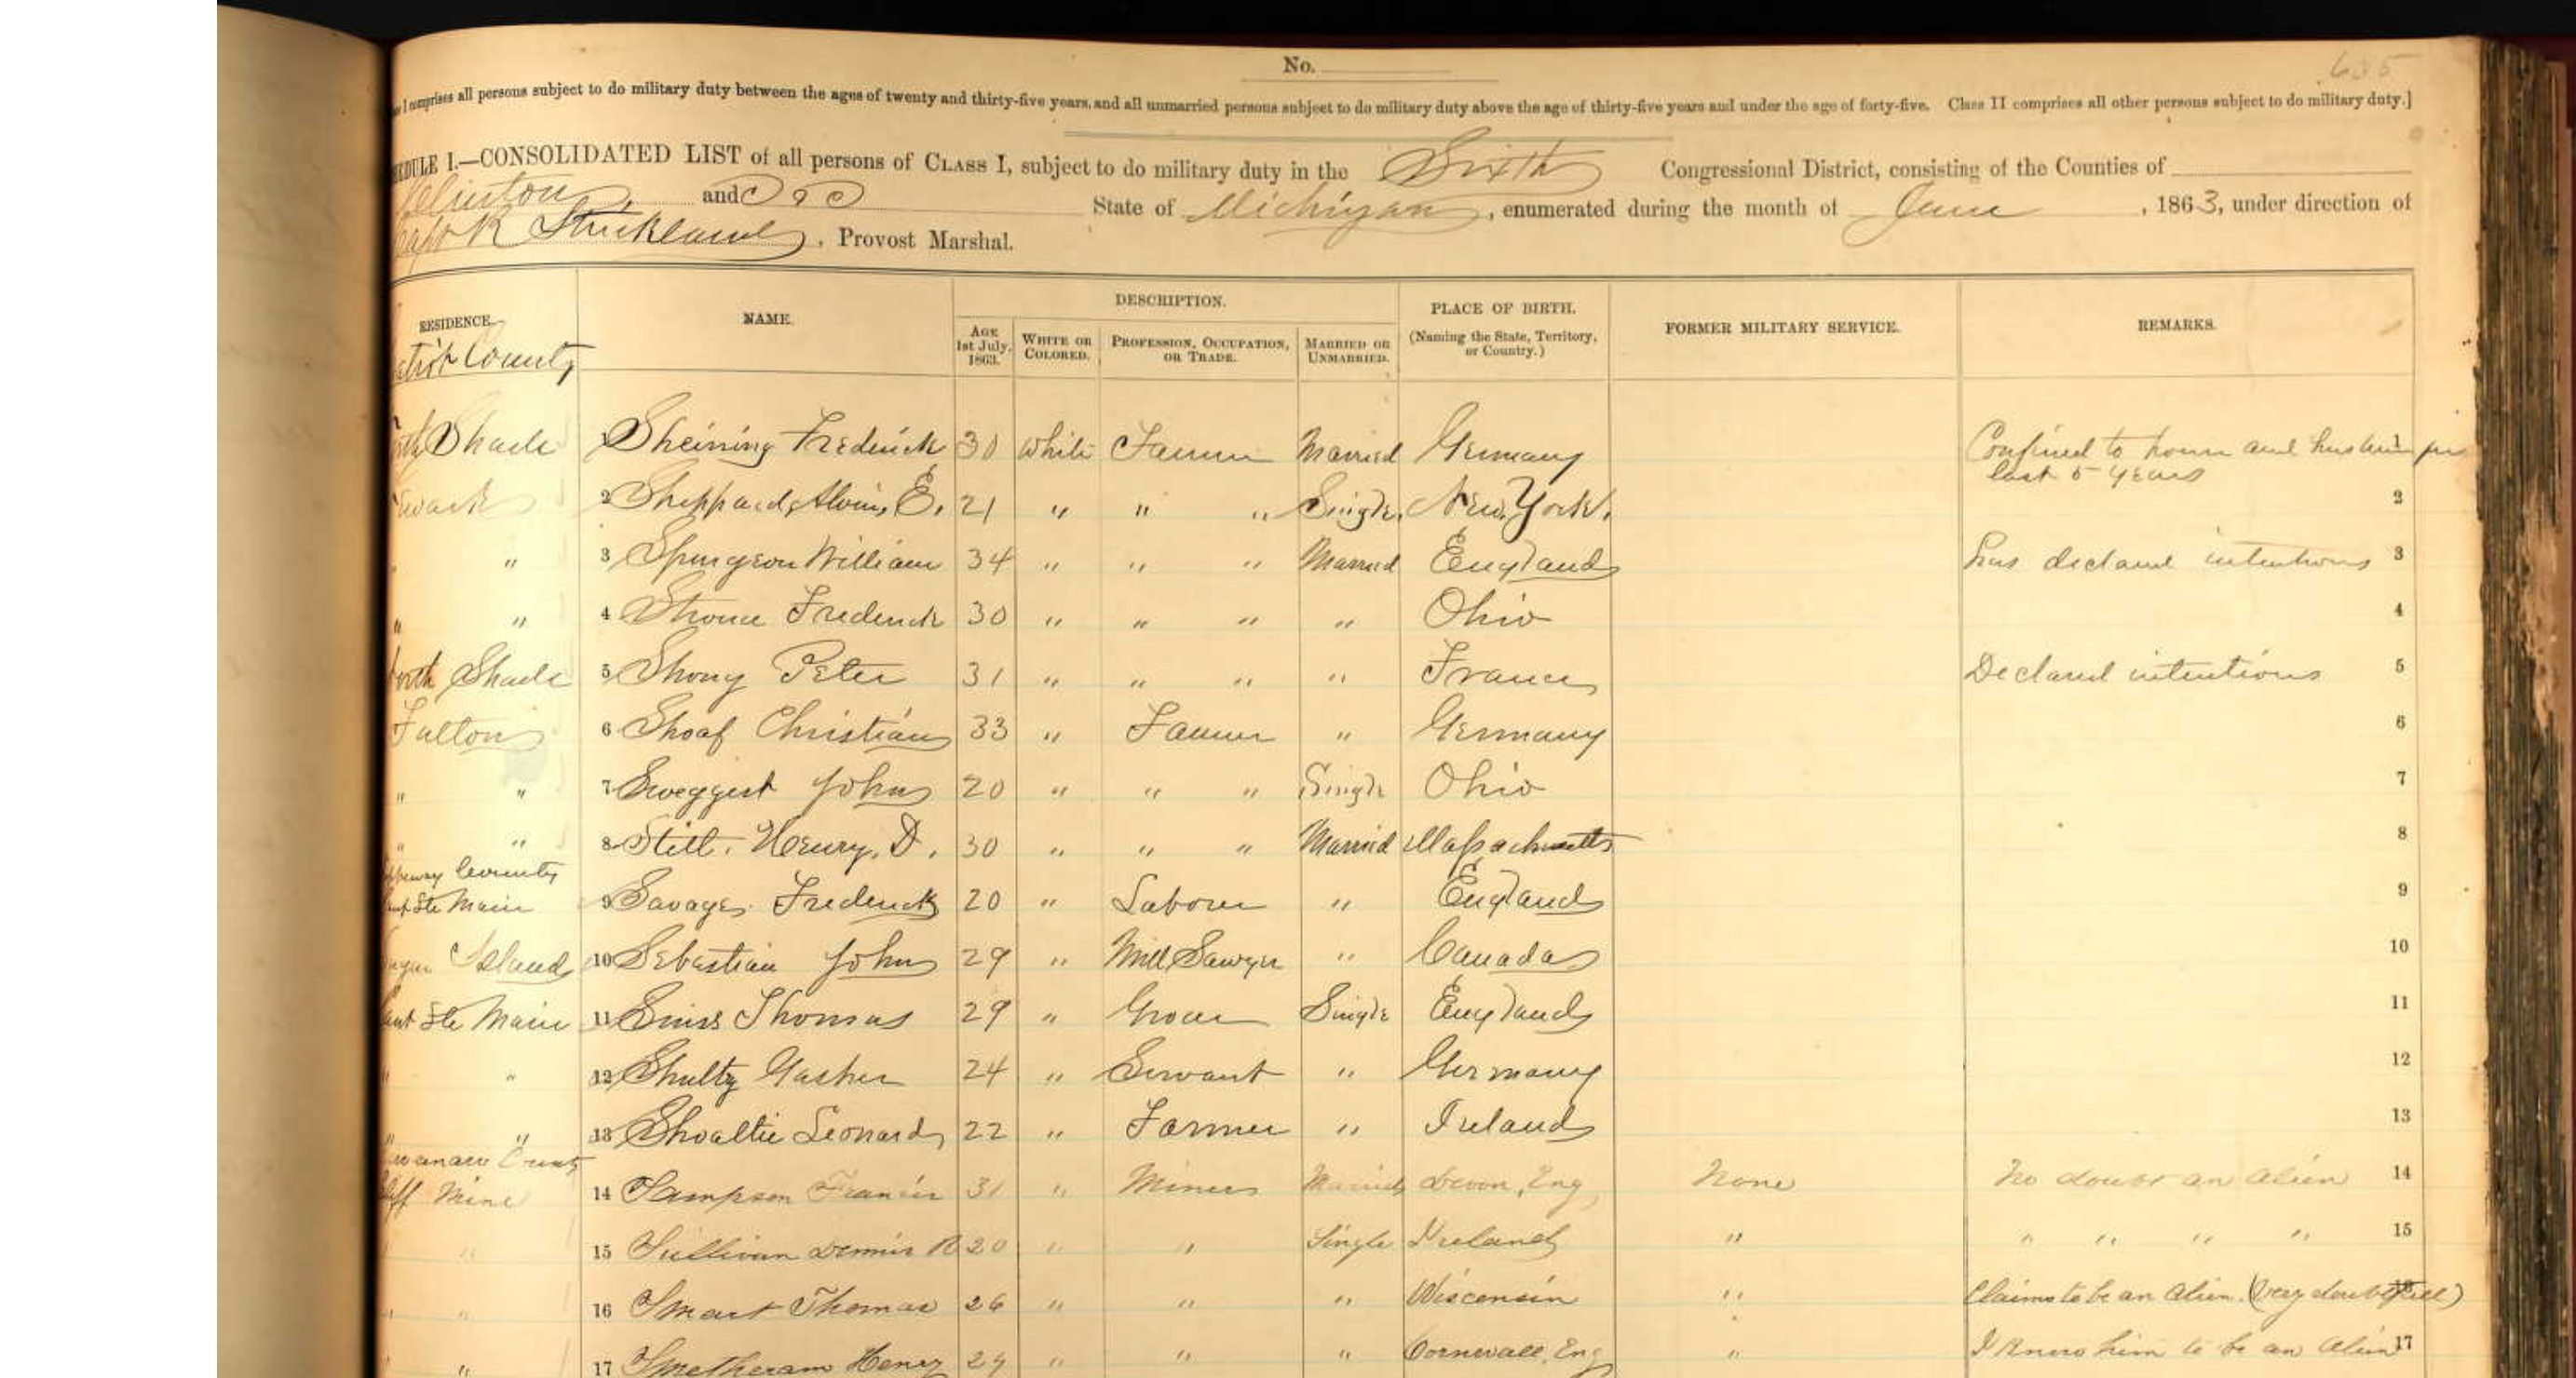 No.
635
I comprises all persons subject to do military duty between the ages of twenty and thirty-five years, and all unmarried persons subject to do military duty above the age of thirty-five years and under the age of forty-five. Class II comprises all other persons subject to do military duty.]
EDULE I.—CONSOLIDATED LIST of all persons of CLASS I, subject to do military duty in the Sixth Congressional District, consisting of the Counties of
Clinton, and State of Michigan, enumerated during the month of June, 1863, under direction of
Capt R Strickland, Provost Marshal.
RESIDENCE. NAME. DESCRIPTION. PLACE OF BIRTH. FORMER MILITARY SERVICE. REMARKS.
AGE 1st July, 1863. WHITE OR COLORED. PROFESSION, OCCUPATION, OR TRADE. MARRIED OR UNMARRIED. (Naming the State, Territory, or Country.)
County
Shade 1 Sheining Frederick 30 White Farmer Married Germany Confined to home and has been for 1
last 5 years
wark 2 Sheppard, Alvin, E. 21 " " " Single New York. 2
" 3 Spurgeon William 34 " " " Married England has declared intentions 3
" " 4 Strouce Frederick 30 " " " " Ohio 4
orth Shade 5 Shony Peter 31 " " " " France Declared intentions 5
Fulton 6 Shoaf Christian 33 " Farmer " Germany 6
" " 7 Sweggest John 20 " " " Single Ohio 7
" " 8 Still. Henry. D. 30 " " " Married Massachusetts 8
County
Ste Marie 9 Savage Frederick 20 " Laborer " England 9
Island 10 Sebastian John 29 " Mill Sawyer " Canada 10
aut Ste Marie 11 Sniss Thomas 29 " Grocer Single England 11
" " 12 Shultz Gasher 24 " Servant " Germany 12
" " 13 Shoaltie Leonard 22 " Farmer " Ireland 13
County
iff Mine 14 Sampson Francis 31 " Miners Married Devon, Eng, None No doubt an alien 14
" 15 Sullivan Dennis R 20 " " Single Ireland " " " " " 15
" " 16 Smart Thomas 26 " " " Wisconsin " Claims to be an Alien (Very doubtfull)
" " 17 Smetheram Henry 29 " " " Cornwall, Eng " I know him to be an Alien 17